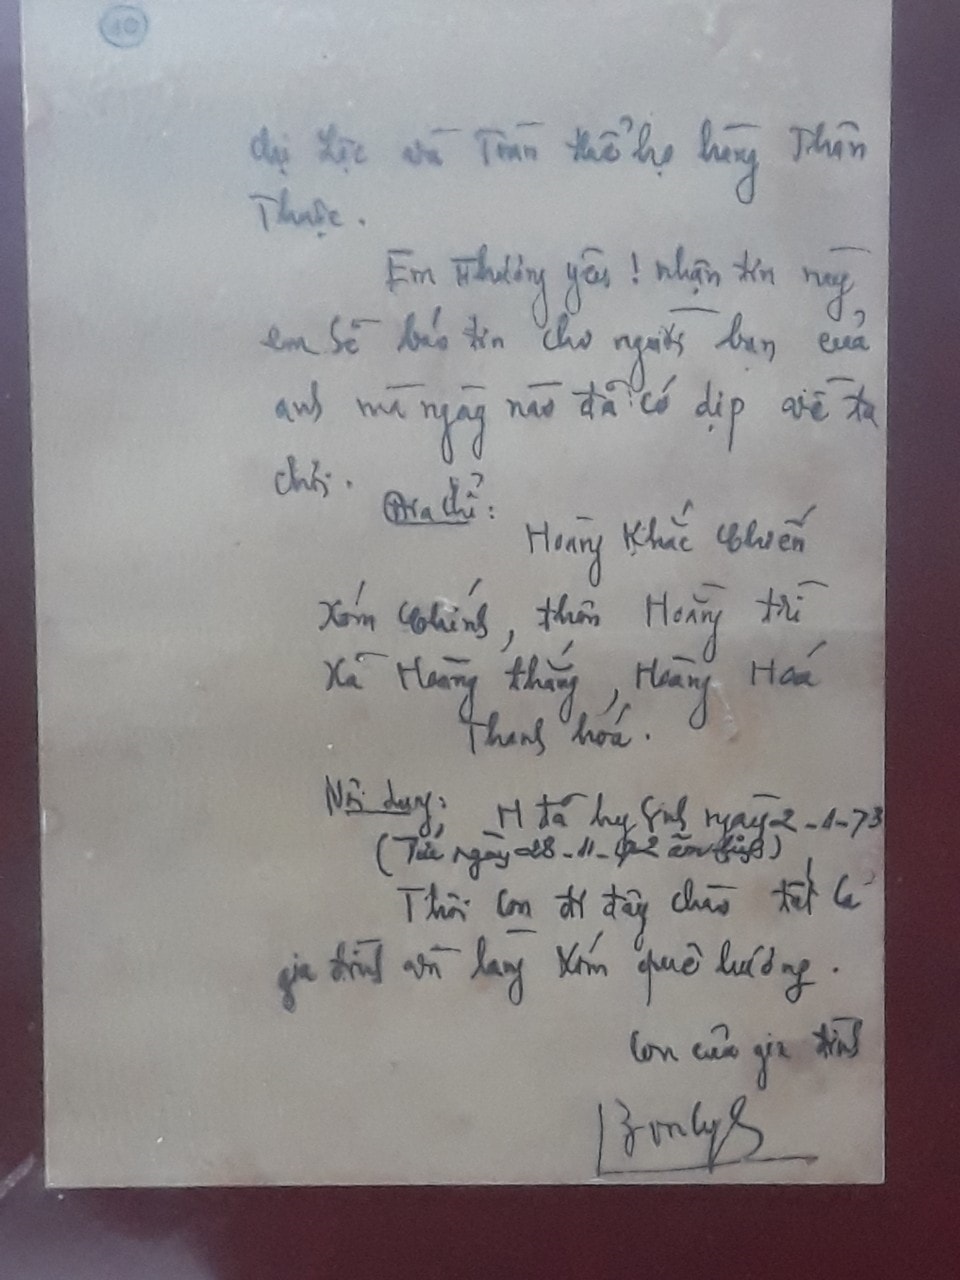 10
đại lộc và Toàn thể họ hàng Thân
Thuộc.
Em Thương yêu! nhận tin này
em sẽ báo tin cho người bạn của
anh mà ngày nào đã có dịp về ta
chơi.
Địa chỉ:
Hoàng Khắc Chiến
Xóm Chính, thôn Hoàng trì
Xã Hoằng thắng, Hoằng Hoá
Thanh hóá.
Nội dung: H đã hy sinh ngày 2-1-73
(Tức ngày 28-11-72 âm lịch)
Thôi con đi đây chào tất cả
gia đình và làng xóm quê hương.
Con của gia đình